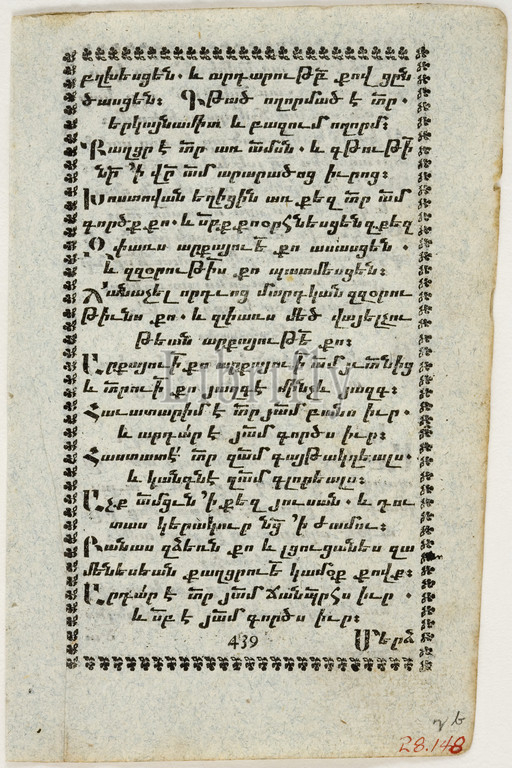 բղխեսցեն. և արդարութբ քով ցըն
ծասցեն։ Գթած ողորմած է տր.
երկայնամիտ և բազում ողորմ։
Քաղցր է տր առ ամնն. և գթութի
նր ՚ի վր ամ արարածոց իւրոց։
Խոստովան եղիցին առ քեզ տր ամ
գործք քո. և սրբք քո օրհնեսցեն զքեզ
Զփառս արքայուե քո ասասցեն .
և զզօրութիս քո պատմեսցեն։
Ճանաչել որդւոց մարդկան զզօրու
թիւնս քո. և զփառս մեծ վայելչու
թեան արքայութե քո։
Արքայուի քո արքայուի ամ յւտնից
և տրուի քո յազգէ մինչև յազգ։
Հաւատարիմ է տր յամ բանս իւր.
և արդար է յամ գործս իւր։
Հաստատէ տր զամ գայթակղեալս.
և կանգնէ զամ գլորեալս։
Աչք ամցւն ՚ի քեզ յուսան. և դու
տաս կերակուր նց ՚ի ժամու։
Բանաս զձեռն քո և լցուցանես զա
մենեսեան քաղցրուե կամօք քովք։
Արդար է տր յամ ճանպրհս իւր .
և սրբ է յամ գործս իւր։
439 Մերձ
28.148